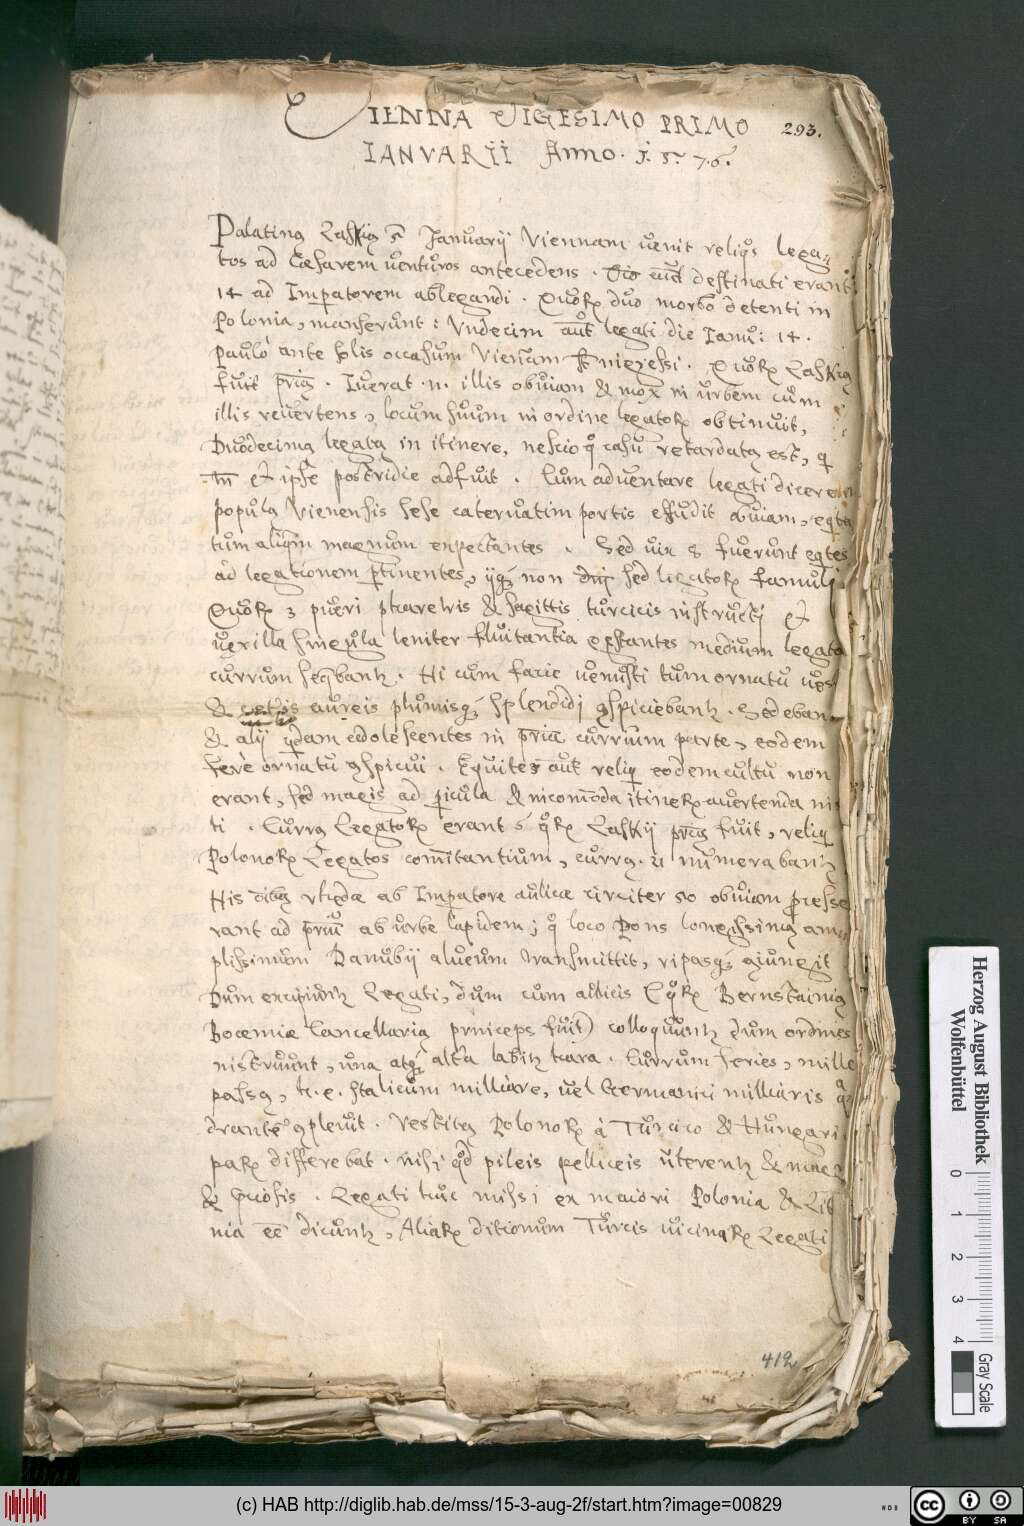 VIENNA VIGESIMO PRIMO 293.
IANVARII Anno. 1.5.7.6.
Palatinꝰ Laskiꝰ Januarij Viennam uenit reliqꝰs lega-
tos ad Cæsarem uenturos antecedens. destinati erant
14 ad Imperatorem ablegandi. Quoꝝ duo morbo detenti in
Polonia, manserunt: Vndecim aut legati die Ianu: 14.
Paulò ante solis occasum Viennam ingressi. Quoꝝ Laskiꝰ
fuit. Iuerat .n. illis obuiam & mox in urbem cum
illis reuertens, locum suum in ordine legatoꝝ obtinuit,
Duodecimꝰ legatꝰ in itinere, nescio qͦ casu retardatꝰ est, q
tn̄ et ipse postridie adfuit. Cum aduentare legati dicerent
populꝰ Vienensis sese cateruatim portis effudit obuiam,
tum aliqm̄ magnum expectantes. Sed uix 8 fuerunt eqͥtes
ad legationem ꝑtinentes, ijqꝫ non dn̄i sed legatoꝝ famuli
Quoꝝ 3 pueri pharetris & sagittis turcicis instructi et
uexilla singula leniter fluitantia gestantes medium legatoꝝ
currum seqͤbantꝛ. Hi cum facie uenusti tum ornatu
& aureis plumisqꝫ splendidi ꝯspiciebantꝛ. Sedebant
& alij qͥdam adolescentes in currum parte, eodem
ferè ornatu ꝯspicui. Equites aut reliqͥ eodem cultu non
erant, sed magis ad ꝑicula & incom̄oda itineꝝ auertenda
ti. Currꝰ Legatoꝝ erant 6 qͦꝝ Laskij fuit, reliqͥ
Polonoꝝ Legatos comitantium, currꝰ. 21 numerabantꝛ
His ab Imperatore aulicæ circiter 50 obuiam ꝓcesse
rant ad ab urbe lapidem; qͦ loco Pons longissimꝰ am-
plissimum Danubij alueum transmittit, ripasqꝫ ꝯiungit
Dum excipiuntꝛ Legati, dum cum aulicis (qͦꝝ Bernstainiꝰ
Boœmiæ Cancellariꝰ princeps fuit) colloquuntꝛ dum ordines
instruunt, una atqꝫ altera labitꝛ hora. Curruum series, mille
passꝰ, h. e. Italicum milliare, uel Germanici milliaris qͣ
drantē ꝯpleuit. Vestitꝰ Polonoꝝ à Turcico & Hungari
paꝝ differebat. nisi qͦd pileis pelliceis uterentꝛ & magnis
& Legati huc missi ex maiori Polonia & Lit
nia eē dicuntꝛ, Aliaꝝ ditionum Turcis uicinaꝝ Legati
412
Herzog August Bibliothek
Wolfenbüttel
0 1 2 3 4
Gray Scale
(c) HAB http://diglib.hab.de/mss/15-3-aug-2f/start.htm?image=00829
WDB
cc BY SA